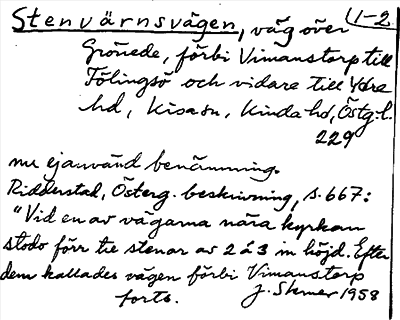 Stenvärnsvägen, väg över 1-2.
Grönede, förbi Vimanstorp till
Fölingsö och vidare till Ydre
hd, Kisa sn, Kinda hd, Östg. l.
229
nu ej använd benämning.
Ridderstad, Österg. beskrivning, s. 667:
"Vid en av vägarna nära kyrkan
stodo förr tre stenar av 2 á 3 m höjd. Efter
dem kallades vägen förbi Vimanstorp
forts. J. Skmer 1958